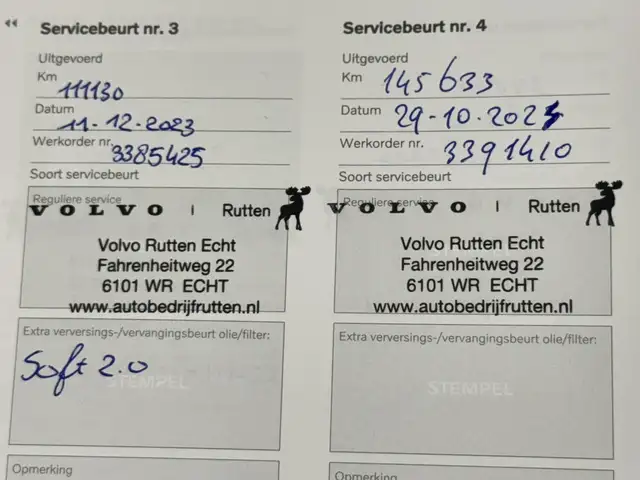 Servicebeurt nr. 3
Uitgevoerd
Km 111130
Datum 11-12-2023
Werkorder nr. 3385425
Soort servicebeurt
Reguliere service
VOLVO | Rutten
Volvo Rutten Echt
Fahrenheitweg 22
6101 WR ECHT
www.autobedrijfrutten.nl
Extra verversings-/vervangingsbeurt olie/filter:
Soft 2.0
STEMPEL
Opmerking
Servicebeurt nr. 4
Uitgevoerd
Km 145633
Datum 29-10-202
Werkorder nr. 3391410
Soort servicebeurt
Reguliere service
VOLVO | Rutten
Volvo Rutten Echt
Fahrenheitweg 22
6101 WR ECHT
www.autobedrijfrutten.nl
Extra verversings-/vervangingsbeurt olie/filter:
STEMPEL
Opmerking